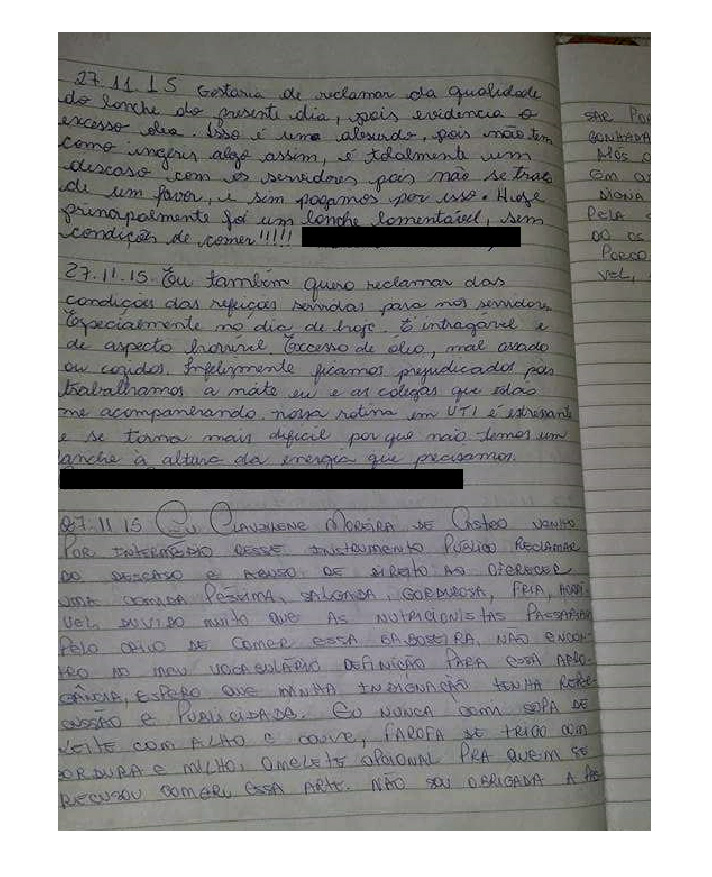 27.11.15 Gostaria de reclamar da qualidade
do lanche do presente dia, pois evidencia o
excesso oleo. Isso é uma absurdo, pois não tem
como ingerir algo assim, é totalmente um
descaso com os servidores pois não se trata
de um favor, e sim pagamos por isso. Hoje
principalmente foi um lanche lamentável, sem
condições de comer!!!!!
27.11.15. Eu também quero reclamar das
condições das refeições servidas para nos servidores.
Especialmente no dia de hoje. É intragável e
de aspecto horrivel. Excesso de oleo, mal assado
ou cozidos. Infelizmente ficamos prejudicados pois
trabalhamos a noite eu e as colegas que estão
me acompanhando, nossa rotina em UTI é estressante
e se torna mais dificil por que não temos um
lanche à altura da energia que precisamos.
27.11.15 Eu Claudirene Moreira de Castro venho
POR INTERMÉDIO DESSE INSTRUMENTO PÚBLICO RECLAMAR
DO DESCASO E ABUSO DE DIREITO AO OFERECER
UMA COMIDA PÉSSIMA, SALGADA, GORDUROSA, FRIA, HORRÍ-
VEL, DUVIDO MUITO QUE AS NUTRICIONISTAS PASSARIAM
PELO CRIVO DE COMER ESSA BABOSEIRA, NÃO ENCON-
TRO NO MEU VOCABULÁRIO DEFINIÇÃO PARA ESSA ARRO-
GÂNCIA, ESPERO QUE MINHA INDIGNAÇÃO TENHA REPER-
CUSSÃO E PUBLICIDADE. EU NUNCA COMI SOPA DE
LEITE COM ALHO E COUVE, FAROFA DE TRIGO COM
GORDURA E MILHO, OMELETE OPCIONAL PRA QUEM SE
RECUSOU COMER ESSA ARTE. NÃO SOU OBRIGADA A
SAE POR
GONHADA
MOS
EM
DIGNA
PELA
DO OS
PORCO
VEL,